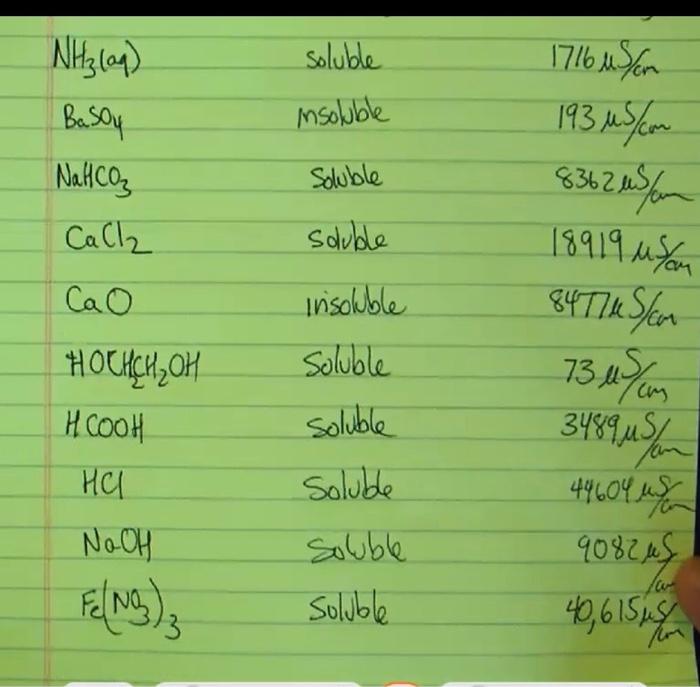 NH3(aq) Soluble 1716 µS/cm
BaSO4 insoluble 193 µS/cm
NaHCO3 Soluble 8362 µS/cm
CaCl2 Soluble 18919 µS/cm
CaO insoluble 8477 µS/cm
HOCH2CH2OH Soluble 73 µS/cm
HCOOH Soluble 3489 µS/cm
HCl Soluble 44604 µS/cm
NaOH Soluble 9082 µS/cm
Fe(NO3)3 Soluble 40,615 µS/cm